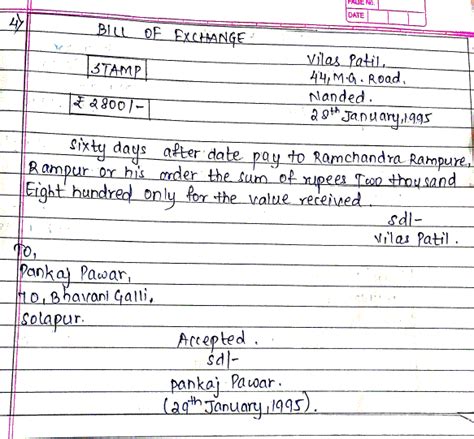 PAGE No.
DATE
4)
BILL OF EXCHANGE
STAMP
₹ 2800/-
Vilas Patil,
44, M.G. Road.
Nanded.
28th January, 1995
Sixty days after date pay to Ramchandra Rampure,
Rampur or his order the sum of rupees Two thousand
Eight hundred only for the value received.
sd/-
Vilas Patil.
To,
Pankaj Pawar,
40, Bhavani Galli,
Solapur.
Accepted.
sd/-
Pankaj Pawar.
(29th January, 1995).